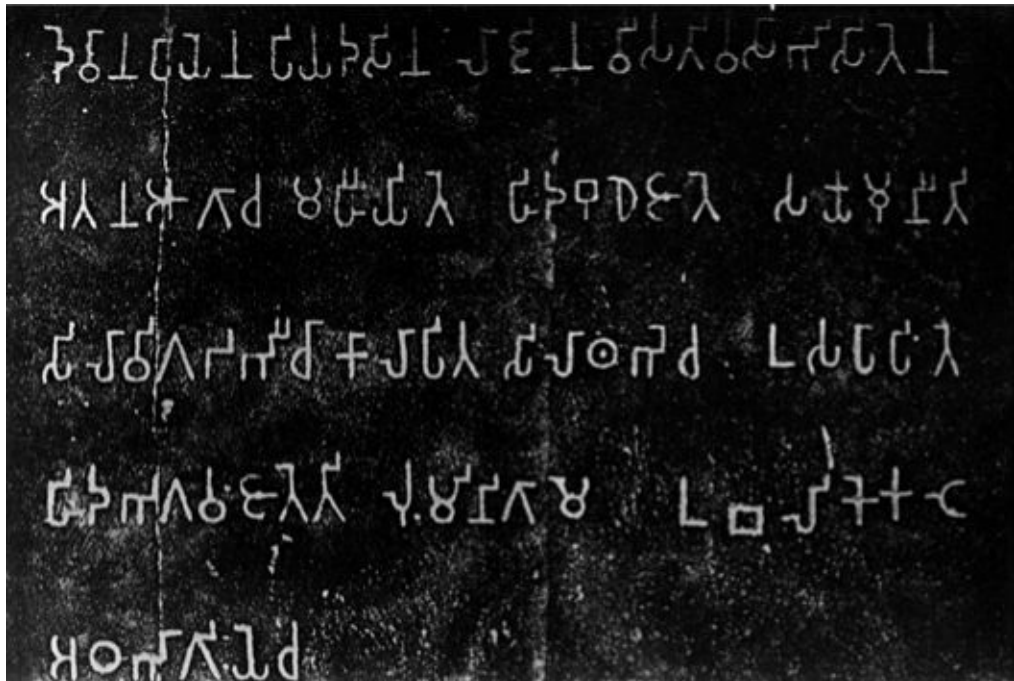 𑀤𑁂𑀯𑀸𑀦𑀧𑀺𑀬𑁂𑀦 𑀧𑀺𑀬𑀤𑀲𑀺𑀦 𑀮𑀸𑀚𑀺𑀦 𑀯𑀻𑀲𑀢𑀺𑀯𑀲𑀸𑀪𑀺𑀲𑀺𑀢𑁂𑀦
𑀅𑀢𑀦 𑀆𑀕𑀸𑀘 𑀫𑀳𑀻𑀬𑀺𑀢𑁂 𑀳𑀺𑀤 𑀩𑀼𑀥𑁂 𑀚𑀸𑀢𑁂 𑀲𑀓𑁆𑀬𑀫𑀼𑀦𑀺𑀢𑀺
𑀲𑀺𑀮𑀸𑀯𑀺𑀕𑀟𑀪𑀺𑀘𑀸 𑀓𑀸𑀮𑀸𑀧𑀺𑀢 𑀲𑀺𑀮𑀸𑀣𑀪𑁂𑀘 𑀉𑀲𑀧𑀸𑀧𑀺𑀢𑁂
𑀳𑀺𑀤 𑀪𑀕𑀯𑀁 𑀚𑀸𑀢𑁂𑀢𑀺 𑀮𑀼𑀁𑀫𑀺𑀦𑀺𑀕𑀸𑀫𑁂 𑀉𑀩𑀮𑀺𑀓𑁂 𑀓𑀝𑁂
𑀅𑀞𑀪𑀸𑀕𑀺𑀬𑁂𑀘